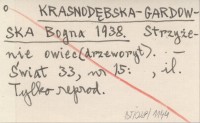 KRASNODĘBSKA-GARDOW-
SKA Bogna 1938. Strzyże-
nie owiec (drzeworyt). —
Świat 33, nr 15: , il.
Tylko reprod.